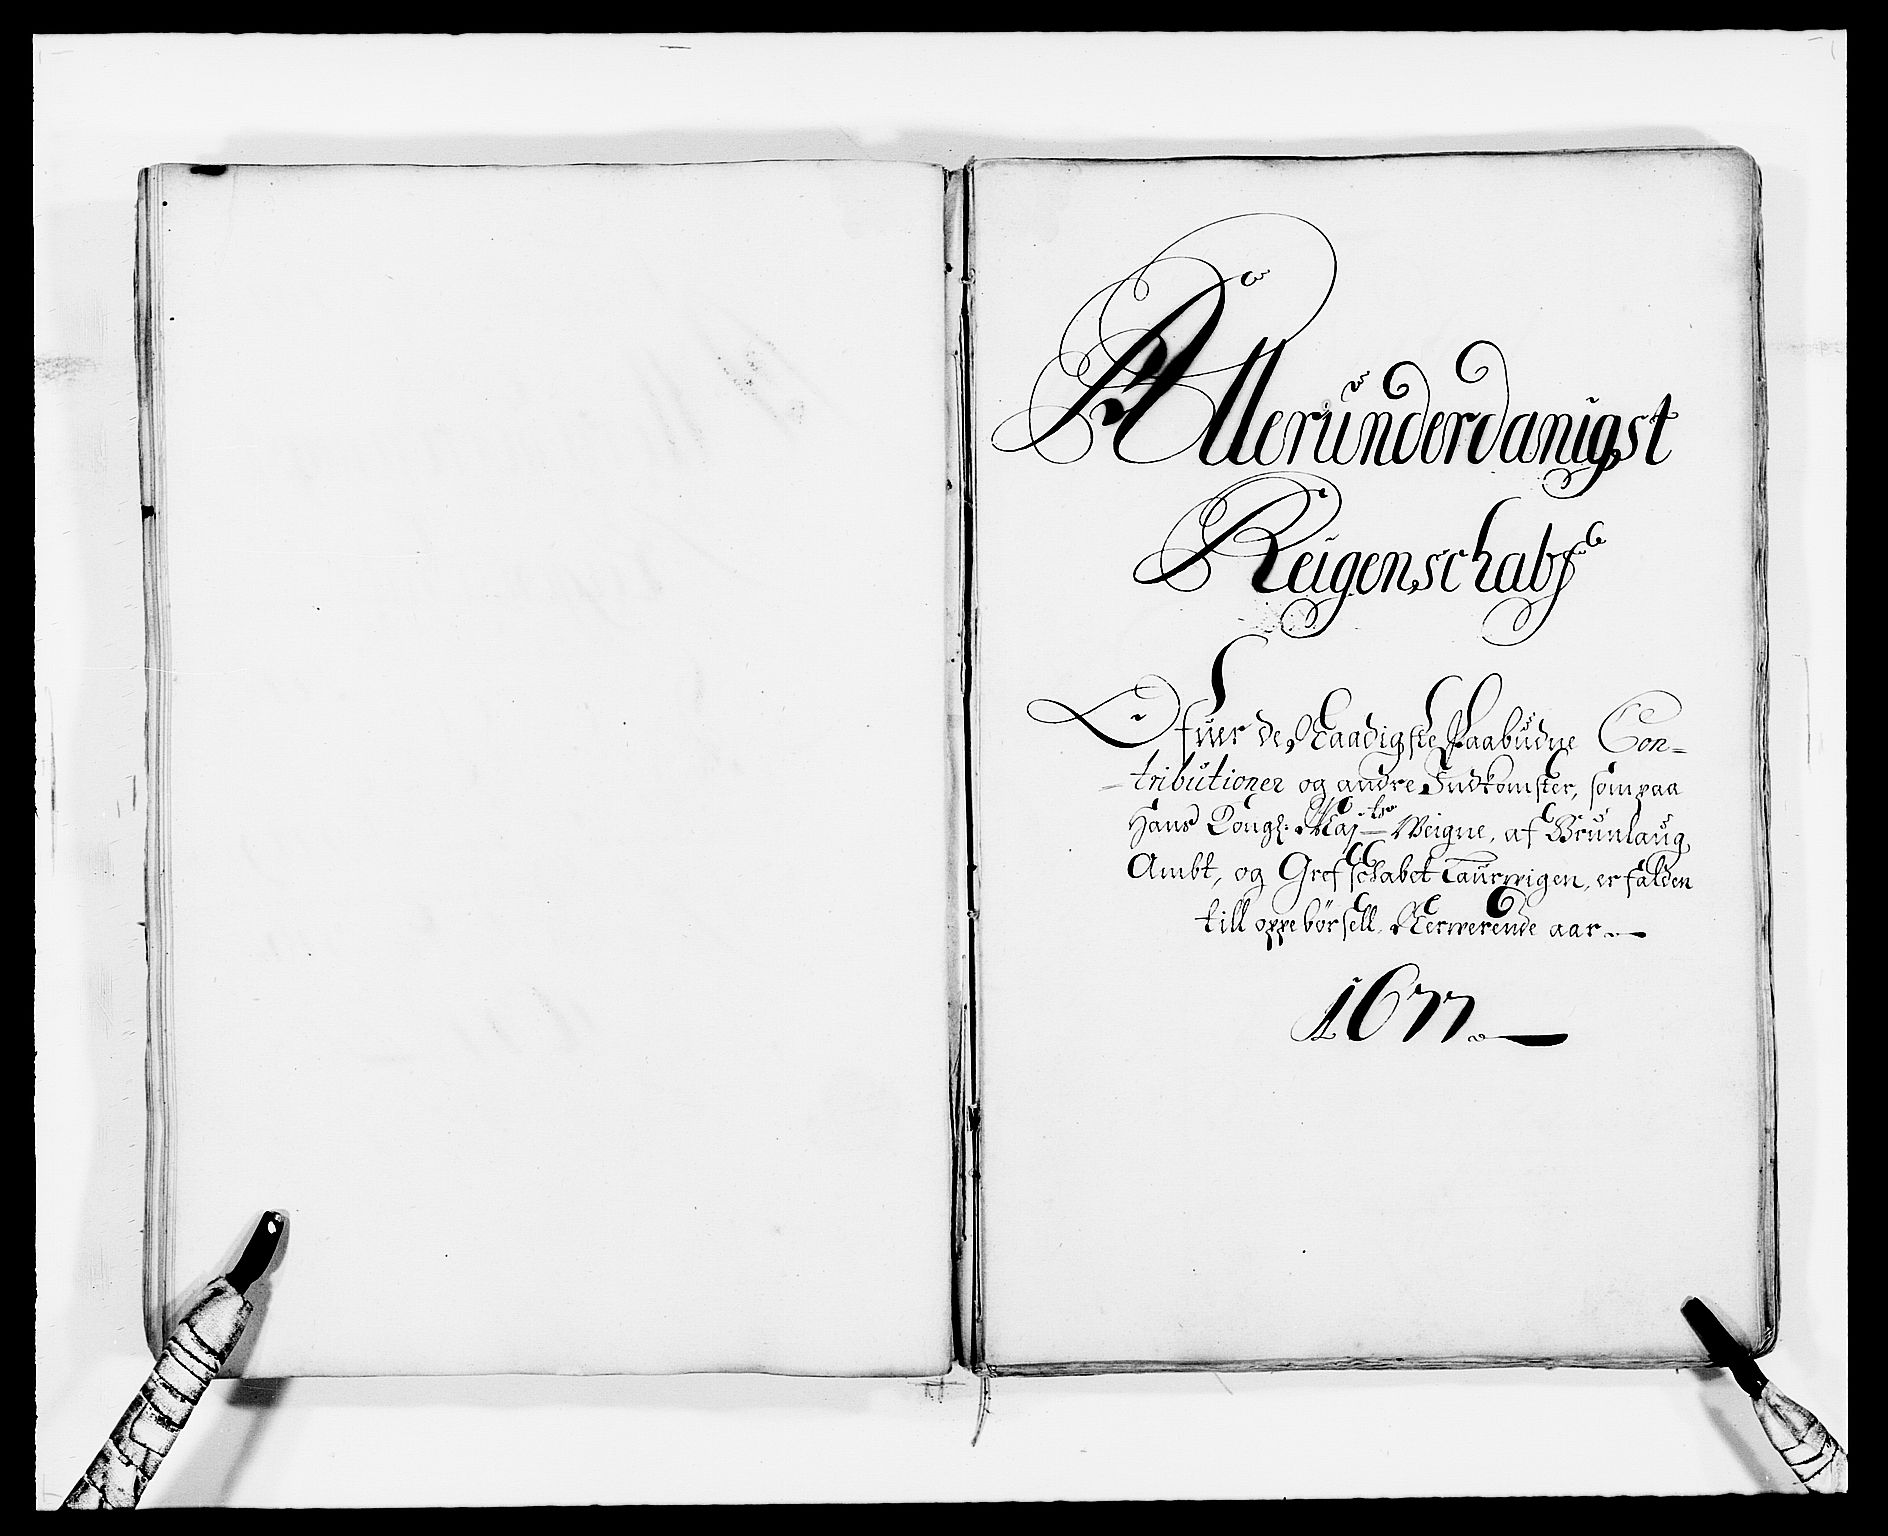 Allerunderdanigst
Reigenschabs
Ofuer de Naadigste Paabudne Con-
tributioner og andre Indkomster, som paa
Hans Kongl: Maj-ts Weigne, af Brunlaug
Ambt, og Grefschabet Laurwigen, er falden
till oppebørsell. Nerwerende aar.
1677.